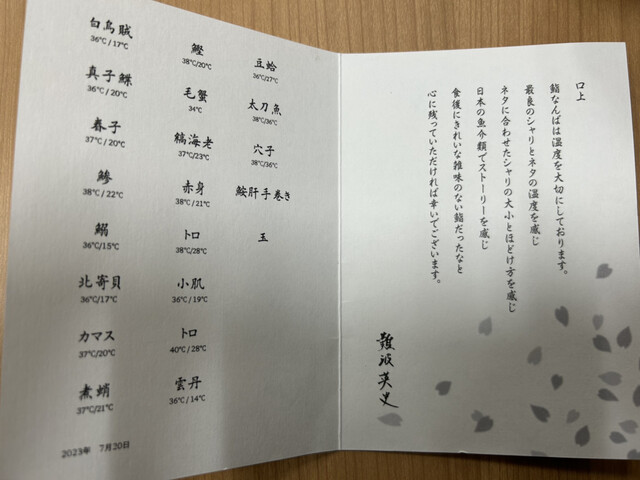 白烏賊
36℃ / 17℃
真子鰈
36℃ / 20℃
春子
37℃ / 20℃
鯵
38℃ / 22℃
鰯
36℃/15℃
北寄貝
36℃/17℃
カマス
37℃/20℃
煮蛸
37℃/21℃
2023年 7月20日
鰹
38℃/20℃
毛蟹
34℃
縞海老
37℃/23℃
赤身
38℃ / 21℃
トロ
38℃/28℃
小肌
36℃ / 19℃
トロ
40℃ / 28℃
雲丹
36℃ / 14℃
豆蛤
36℃/27℃
太刀魚
38℃/36℃
穴子
38℃/36℃
鮟肝手巻き
玉
口上
鮨なんばは温度を大切にしております。
最良のシャリとネタの温度を感じ
ネタに合わせたシャリの大小とほどけ方を感じ
日本の魚介類でストーリーを感じ
食後にきれいな雑味のない鮨だったなと
心に残っていただければ幸いでございます。
難波英史